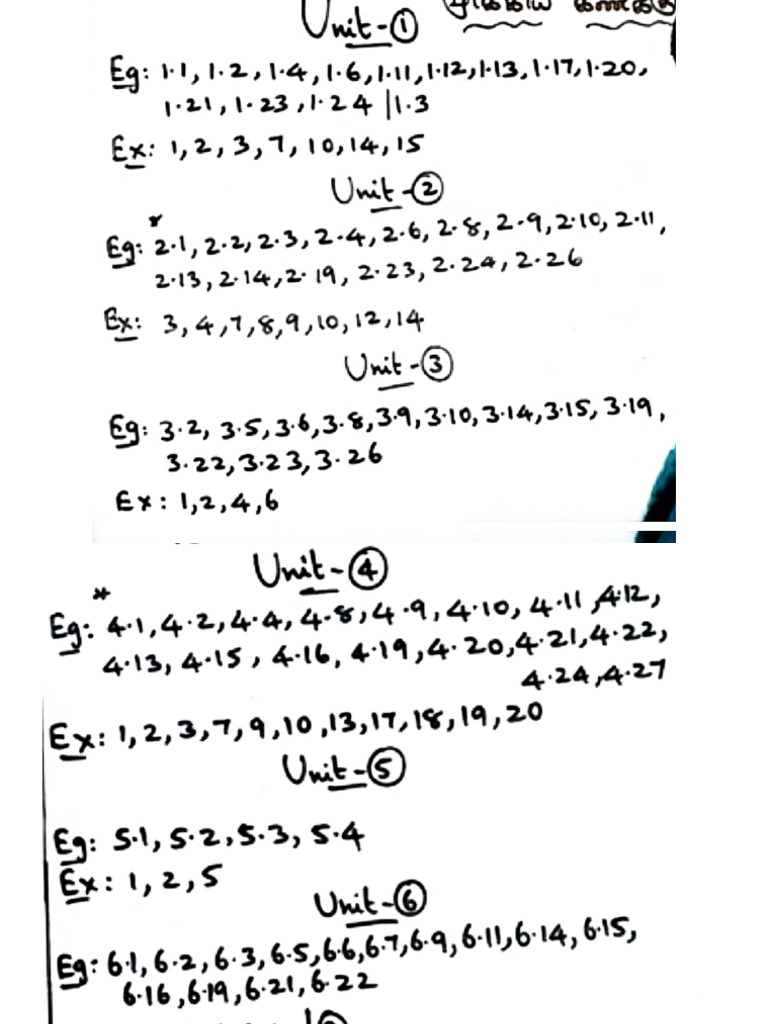 Unit-①
முக்கிய கணக்கு
Eg: 1.1, 1.2, 1.4, 1.6, 1.11, 1.12, 1.13, 1.17, 1.20,
1.21, 1.23, 1.24 | 1.3
Ex: 1, 2, 3, 7, 10, 14, 15
Unit-②
*
Eg: 2.1, 2.2, 2.3, 2.4, 2.6, 2.8, 2.9, 2.10, 2.11,
2.13, 2.14, 2.19, 2.23, 2.24, 2.26
Ex: 3, 4, 7, 8, 9, 10, 12, 14
Unit-③
Eg: 3.2, 3.5, 3.6, 3.8, 3.9, 3.10, 3.14, 3.15, 3.19,
3.22, 3.23, 3.26
Ex: 1, 2, 4, 6
Unit-④
**
Eg: 4.1, 4.2, 4.4, 4.8, 4.9, 4.10, 4.11, 4.12,
4.13, 4.15, 4.16, 4.19, 4.20, 4.21, 4.22,
4.24, 4.27
Ex: 1, 2, 3, 7, 9, 10, 13, 17, 18, 19, 20
Unit-⑤
Eg: 5.1, 5.2, 5.3, 5.4
Ex: 1, 2, 5
Unit-⑥
Eg: 6.1, 6.2, 6.3, 6.5, 6.6, 6.7, 6.9, 6.11, 6.14, 6.15,
6.16, 6.19, 6.21, 6.22